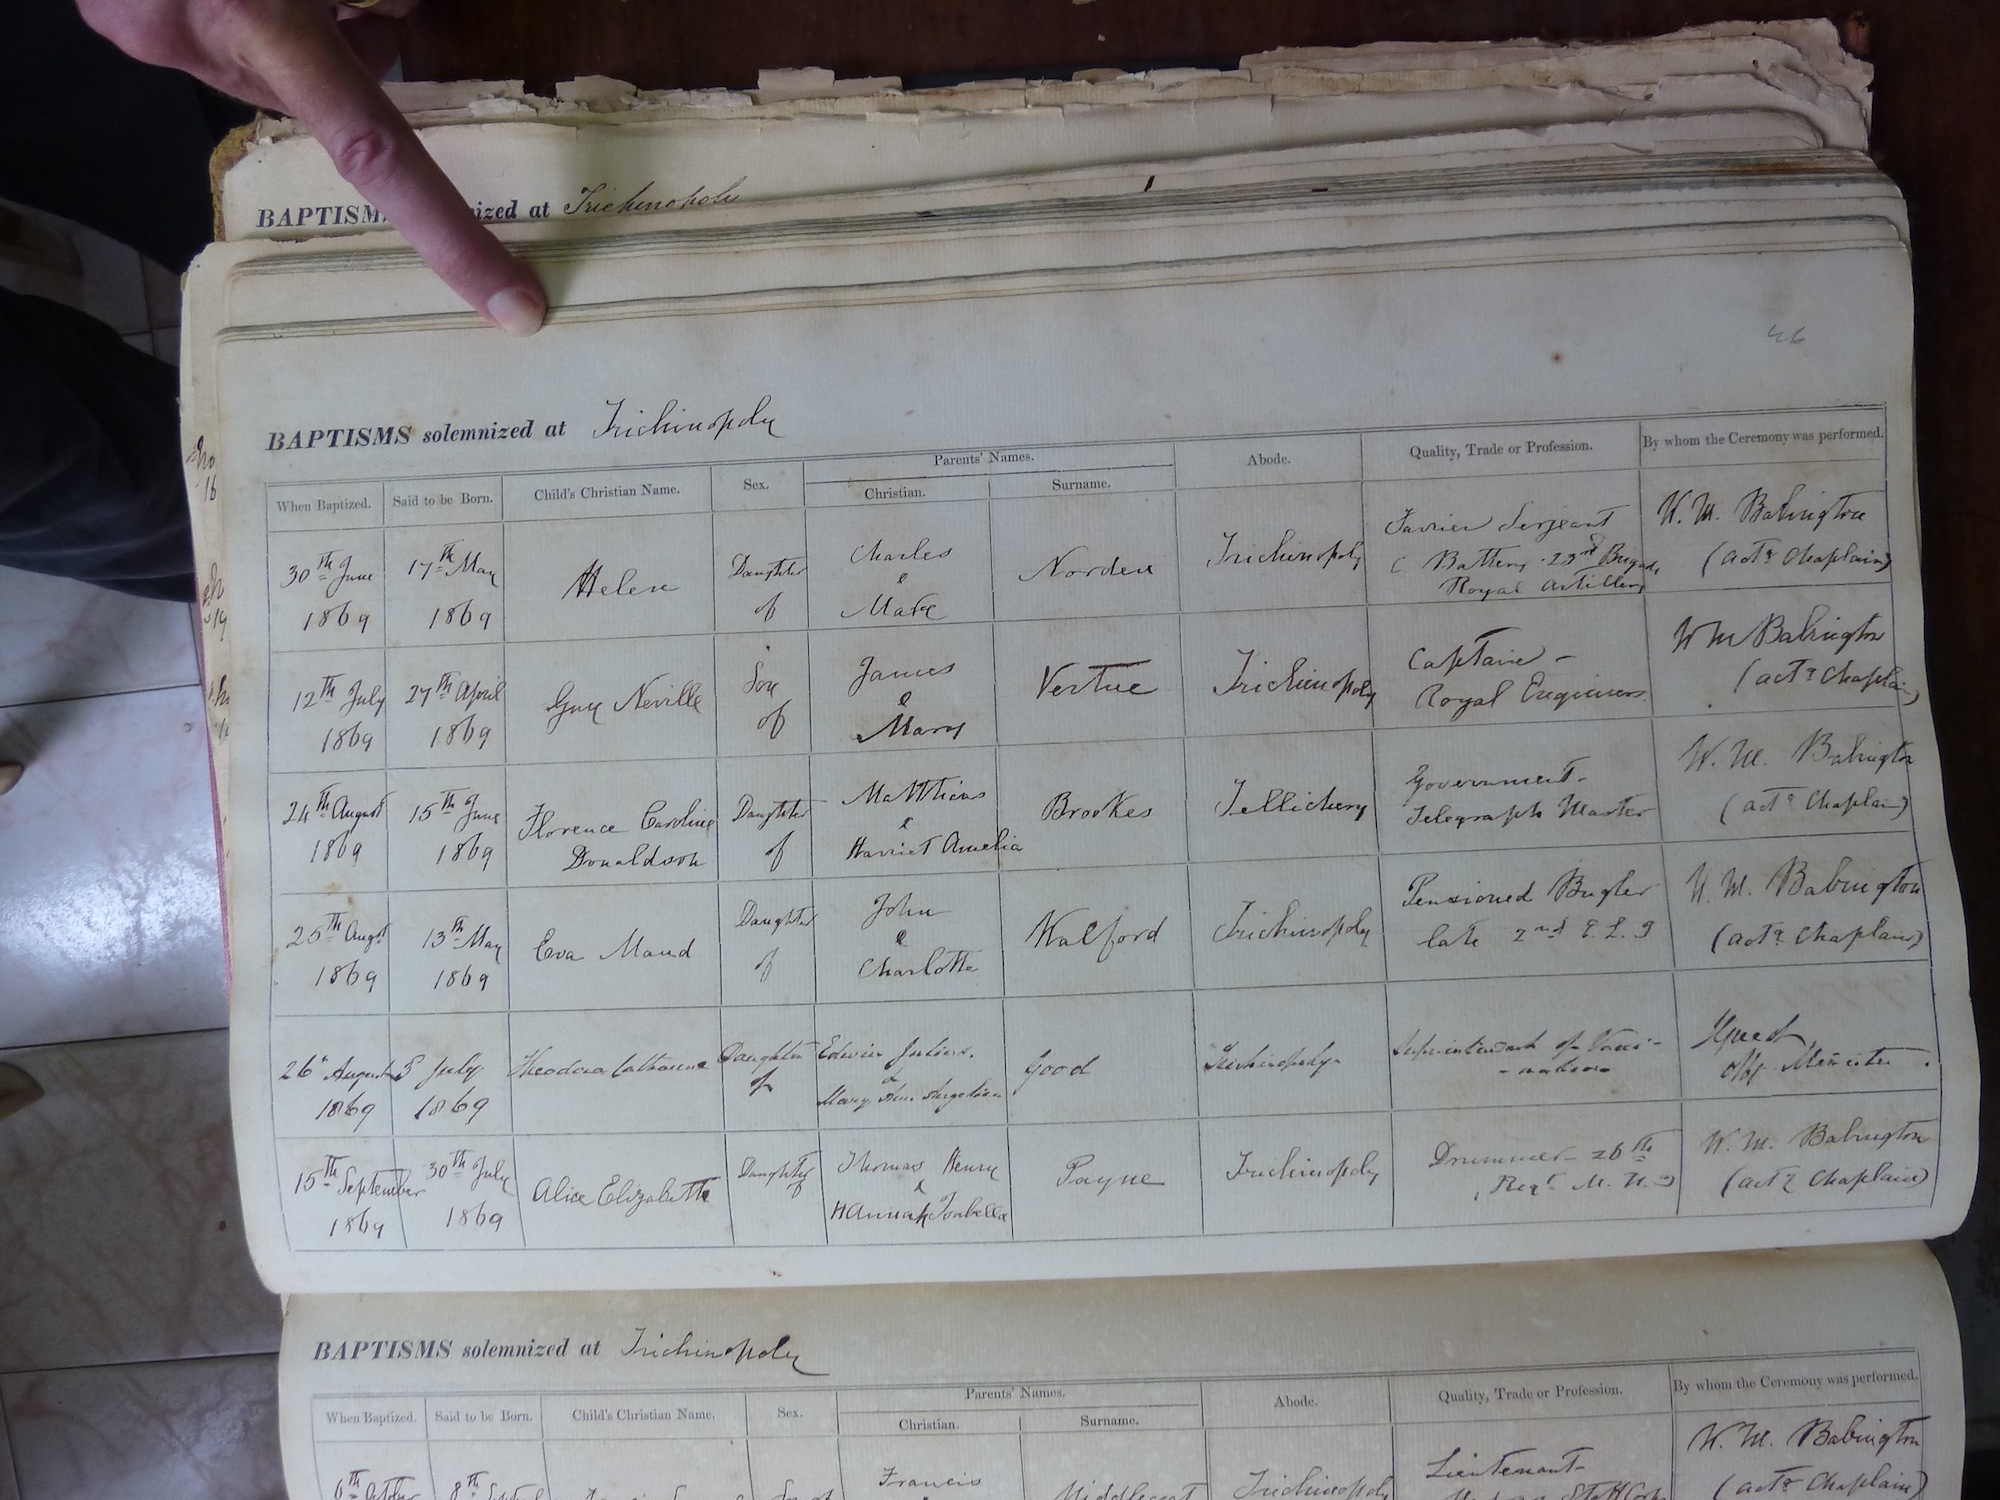 BAPTISMS solemnized at Trichinopoly
46
BAPTISMS solemnized at Trichinopoly
When Baptized. Said to be Born. Child's Christian Name. Sex. Parents' Names. Christian. Surname. Abode. Quality, Trade or Profession. By whom the Ceremony was performed.
30th June 1869
17th May 1869
Helen
Daughter of
Charles & Mary
Norden
Trichinopoly
Farrier Serjeant
C Battery 23rd Brigade
Royal Artillery
W. M. Babington
(actg Chaplain)
12th July 1869
27th April 1869
Guy Neville
Son of
James & Mary
Vertue
Trichinopoly
Captain -
Royal Engineers
W M Babington
(actg Chaplain)
24th August 1869
15th June 1869
Florence Caroline
Donaldson
Daughter of
Matthias & Harriet Amelia
Brookes
Tellichery
Government
Telegraph Master
W. M. Babington
(actg Chaplain)
25th Augst 1869
13th May 1869
Eva Maud
Daughter of
John & Charlotte
Walford
Trichinopoly
Pensioned Bugler
late 2nd E. L. I
W. M. Babington
(actg Chaplain)
26 August 1869
July 1869
Theodora Catherine
Daughter of
Edwin Julius &
Mary Ann
Good
Trichinopoly
Superintendent of Vacci-
-nation
15th September 1869
30th July 1869
Alice Elizabeth
Daughter of
Thomas Henry &
Hannah Isabella
Payne
Trichinopoly
Drummer 26th
Regt M. N. I
W. M. Babington
(actg Chaplain)
BAPTISMS solemnized at Trichinopoly
When Baptized. Said to be Born. Child's Christian Name. Sex. Parents' Names. Christian. Surname. Abode. Quality, Trade or Profession. By whom the Ceremony was performed.
6th October
8th
Son of
Francis
Middlecoat
Trichinopoly
Lieutenant
Staff Corps
W. M. Babington
(actg Chaplain)